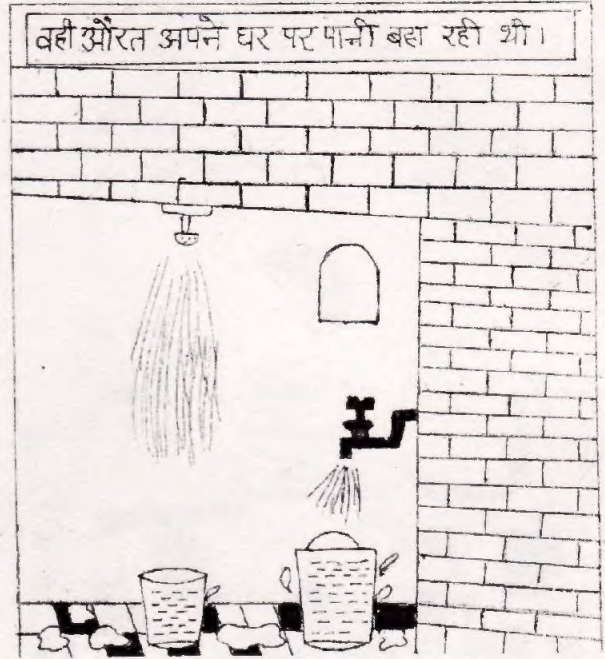 वही औरत अपने घर पर पानी बहा रही थी।